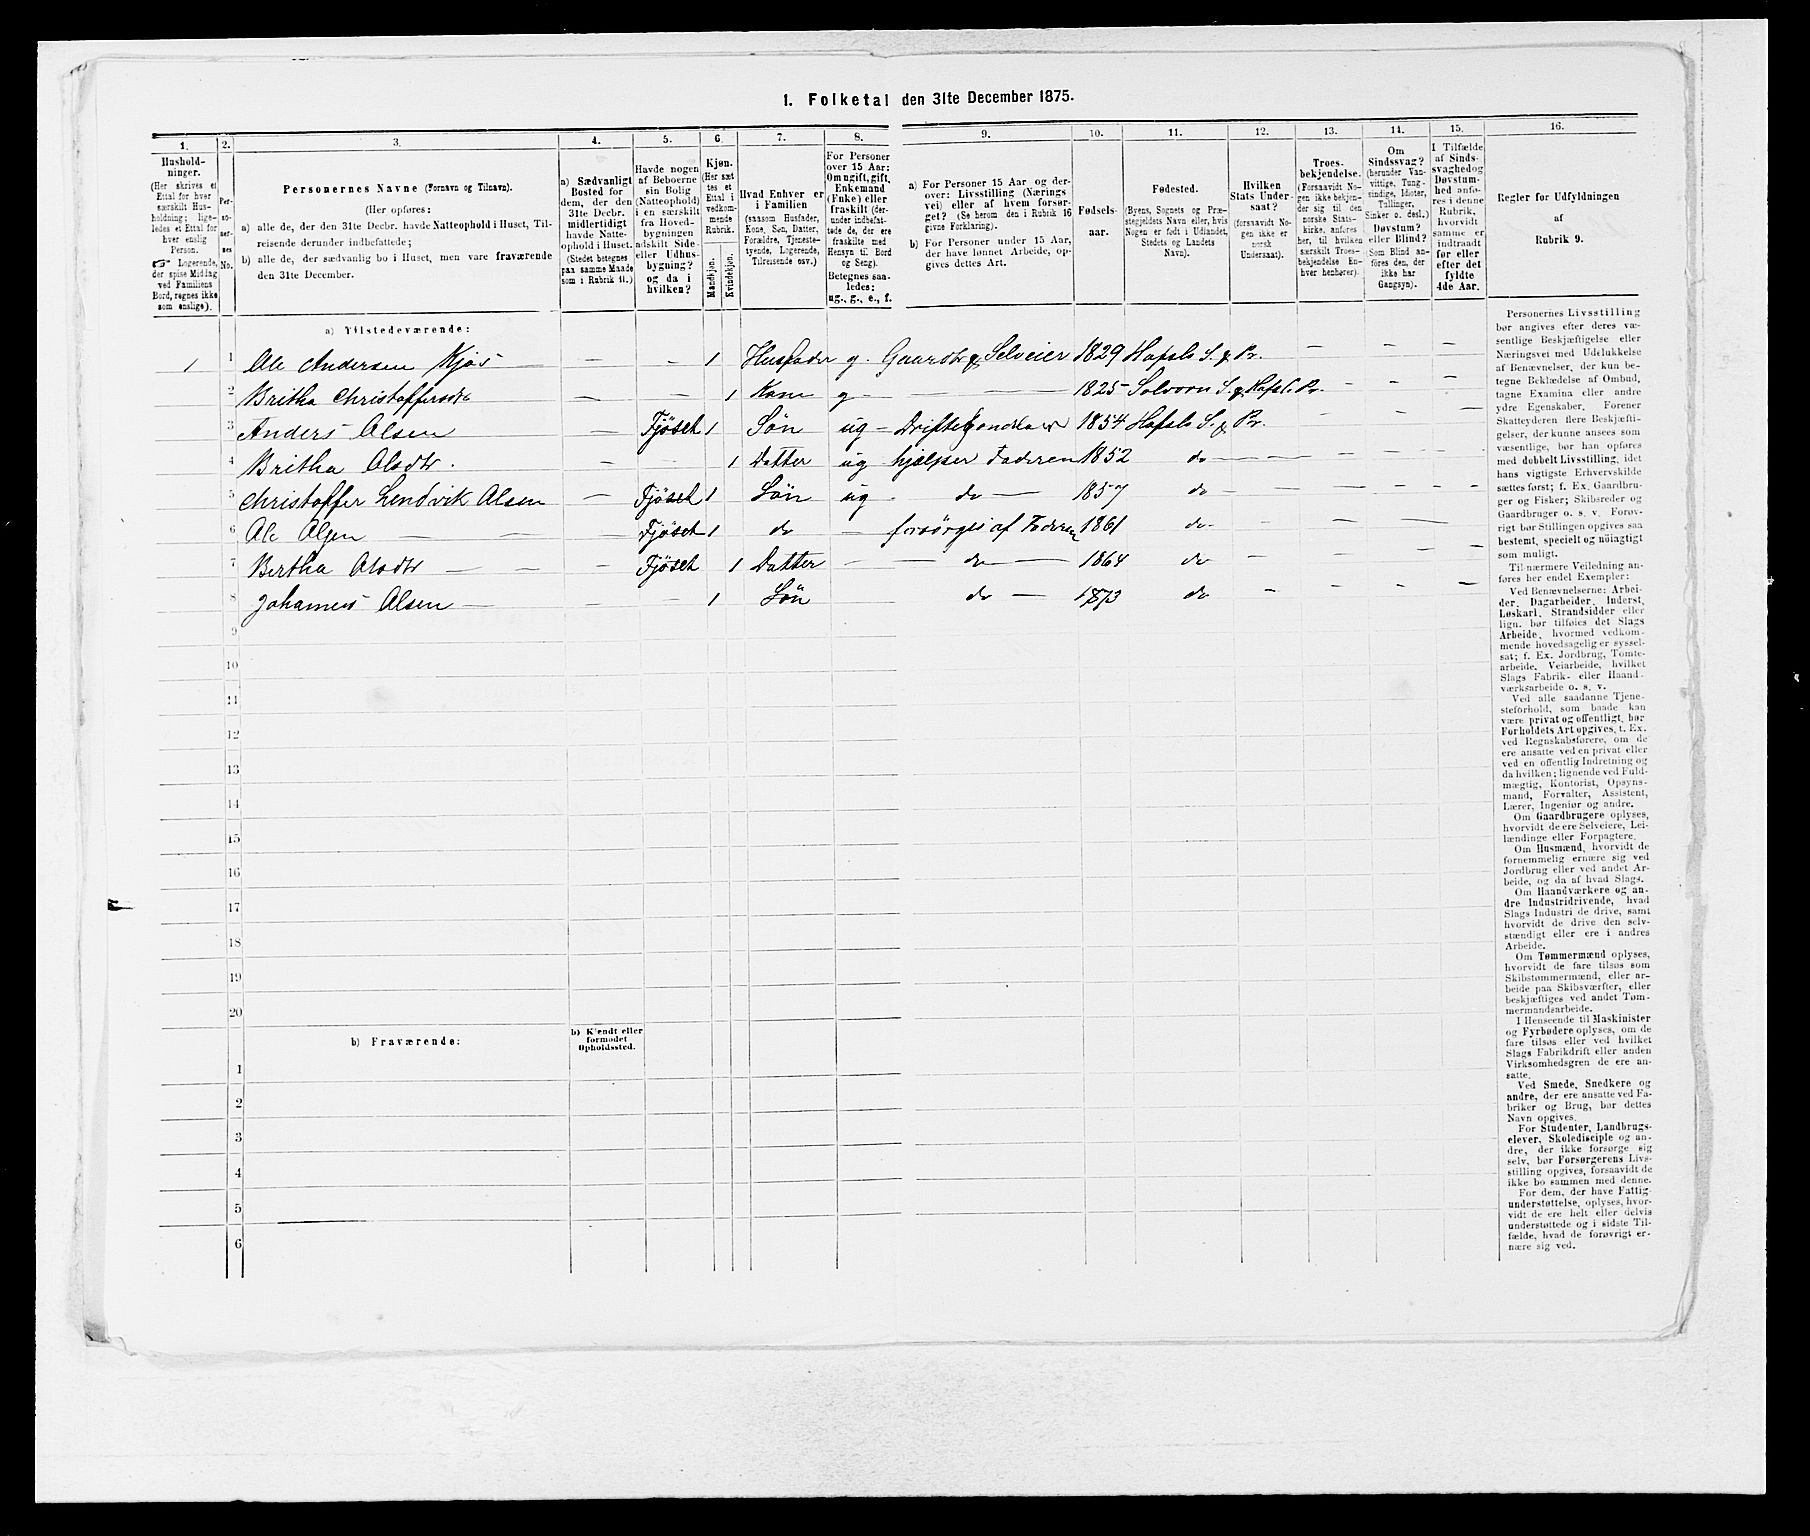 1. Folketal den 31te December 1875.
1. 2. 3. 4. 5. 6. 7. 8. 9. 10. 11. 12. 13. 14. 15. 16.
Hushold-
ninger.
(Her skrives et
Ettal for hver
særskilt Hus-
holdning; lige-
ledes et Ettal for
hver enslig
Person.
☞ Logerende,
der spise Middag
ved Familiens
Bord, regnes ikke
som enslige).
Per-
so-
ner-
nes
No.
Personernes Navne (Fornavn og Tilnavn).
(Her opføres:
a) alle de, der den 31te Decbr. havde Natteophold i Huset, Til-
reisende derunder indbefattede;
b) alle de, der sædvanlig bo i Huset, men vare fraværende
den 31te December.
a) Sædvanligt
Bosted for
dem, der den
31te Decbr.
midlertidigt
havde Natte-
ophold i Huset.
(Stedet betegnes
paa samme Maade
som i Rubrik 11.)
Havde nogen
af Beboerne
sin Bolig
(Natteophold)
i en særskilt
fra Hoved-
bygningen
adskilt Side-
eller Udhus-
bygning?
og da i
hvilken?
Kjøn.
(Her sæt
tes et
Ettal i
vedkom-
mende
Rubrik.
Mandkjøn.
Kvindekjøn.
Hvad Enhver er
i Familien
(saasom Husfader,
Kone, Søn, Datter,
Forældre, Tjeneste-
tyende, Logerende,
Tilreisende osv.)
For Personer
over 15 Aar:
Om ugift, gift,
Enkemand
(Enke) eller
fraskilt (der-
under indbefat-
tede de, der ere
fraskilte med
Hensyn til Bord
og Seng).
Betegnes saa-
ledes:
ug., g., e., f.
a) For Personer 15 Aar og der-
over: Livsstilling (Nærings
vei) eller af hvem forsør-
get? (Se herom den i Rubrik 16
givne Forklaring).
b) For Personer under 15 Aar,
der have lønnet Arbeide, op-
gives dettes Art.
Fødsels-
aar.
Fødested.
(Byens, Sognets og Præ-
stegjeldets Navn eller, hvis
Nogen er født i Udlandet,
Stedets og Landets
Navn).
Hvilken
Stats Under-
saat?
(forsaavidt No-
gen ikke er
norsk
Undersaat).
Troes-
bekjendelse.
(Forsaavidt No-
gen ikke bekjen-
der sig til den
norske Stats-
kirke, anføres
her, til hvilken
særskilt Troes-
bekjendelse En-
hver henhører).
Om
Sindssvag?
(herunder Van-
vittige, Tung-
sindige, Idioter,
Tullinger,
Sinker o. desl.)
Døvstum?
eller Blind?
(Som Blind an-
føres den, der
ikke har
Gangsyn).
I Tilfælde
af Sinds-
svaghedog
Døvstum-
hed anfø-
res i denne
Rubrik,
hvorvidt
samme er
indtraadt
før eller
efter det
fyldte
4de Aar.
Regler for Udfyldningen
af
Rubrik 9.
a) Tilstedeværende:
1 1 Ole Andersen Kjøs — — 1 Husfader g. Gaardbr. & Selveier 1829 Hafslo S. & Pr. — — — —
2 Britha Christoffersdtr — — 1 Kone g — — 1825 Solvorn S. & Hafsl. Pr. — — —
3 Anders Olsen — Fjøset 1 Søn ug — 1854 Hafslo S. & Pr. — — — —
4 Britha Olsdtr. — — 1 Datter ug hjelper Faderen 1852 do — — — — —
5 Christoffer Lendvik Olsen — Fjöset 1 Søn ug do — 1857 do — — — — —
6 Ole Olsen — — — Fjöset 1 do — forsörges af Faderen 1861 do — — — — —
7 Bertha Olsdtr — — — Fjöset 1 Datter — — do — 1864 do — — — —
8 Johannes Olsen — — — 1 Søn do — 1873 do — — — —
9
10
11
12
13
14
15
16
17
18
19
20
b) Fraværende:
b) Kjendt eller
formodet
Opholdssted.
1
2
3
4
5
6
Personernes Livsstilling
bør angives efter deres væ-
sentlige Beskjæftigelse eller
Næringsvei med Udelukkelse
af Benævnelser, der kun be-
tegne Beklædelse af Ombud,
tagne Examina eller andre
ydre Egenskaber. Forener
Skatteyderen flere Beskjæfti-
gelser, der kunne ansees som
væsentlige, bør han opføres
med dobbelt Livsstilling, idet
hans vigtigste Erhvervskilde
sættes først; f. Ex. Gaardbru-
ger og Fisker; Skibsreder og
Gaardbruger o. s. v. Forøv-
rigt bør Stillingen opgives saa
bestemt, specielt og nøiagtigt
som muligt.
Til nærmere Veiledning an-
føres her endel Exempler:
Ved Benævnelserne: Arbei-
der, Dagarbeider, Inderst,
Løskarl, Strandsidder eller
lign. bør tilføies det Slags
Arbeide, hvormed vedkom-
mende hovedsagelig er syssel-
sat; f. Ex. Jordbrug, Tomte-
arbeide, Veiarbeide, hvilket
Slags Fabrik- eller Haand-
værksarbeide o. s. v.
Ved alle saadanne Tjene-
steforhold, som baade kan
være privat og offentligt, bør
Forholdets Art opgives, t. Ex.
ved Regnskabsførere, om de
ere ansatte ved en privat eller
ved en offentlig Indretning og
da hvilken; lignende ved Fuld-
mægtig, Kontorist, Opsyns-
mand, Forvalter, Assistent,
Lærer, Ingeniør og andre.
Om Gaardbrugere oplyses,
hvorvidt de ere Selveiere, Lei-
lændinge eller Forpagtere.
Om Husmænd, hvorvidt de
fornemmelig ernære sig ved
Jordbrug eller ved andet Ar-
beide, og da af hvad Slags.
Om Haandværkere og an-
dre Industridrivende, hvad
Slags Industri de drive, samt
hvorvidt de drive den selv-
stændigt eller ere i andres
Arbeide.
Om Tømmermænd oplyses,
hvorvidt de fare tilsøs som
Skibstømmermænd, eller ar-
beide paa Skibsværfter, eller
beskjæftiges ved andet Tøm-
mermandsarbeide.
I Henseende til Maskinister
og Fyrbødere oplyses, om de
fare tilsøs eller ved hvilket
Slags Fabrikdrift eller anden
Virksomhedsgren de ere an-
satte.
Ved Smede, Snedkere og
andre, der ere ansatte ved Fa-
briker og Brug, bør dettes
Navn opgives.
For Studenter, Landbrugs-
elever, Skoledisciple og an-
dre, der ikke forsørge sig
selv, bør Forsørgerens Livs-
stilling opgives, forsaavidt de
ikke bo sammen med denne.
For dem, der have Fattig-
understøttelse, oplyses, hvor-
vidt de ere helt eller delvis
understøttede og i sidste Til-
fælde, hvad de forøvrigt er-
nære sig ved.